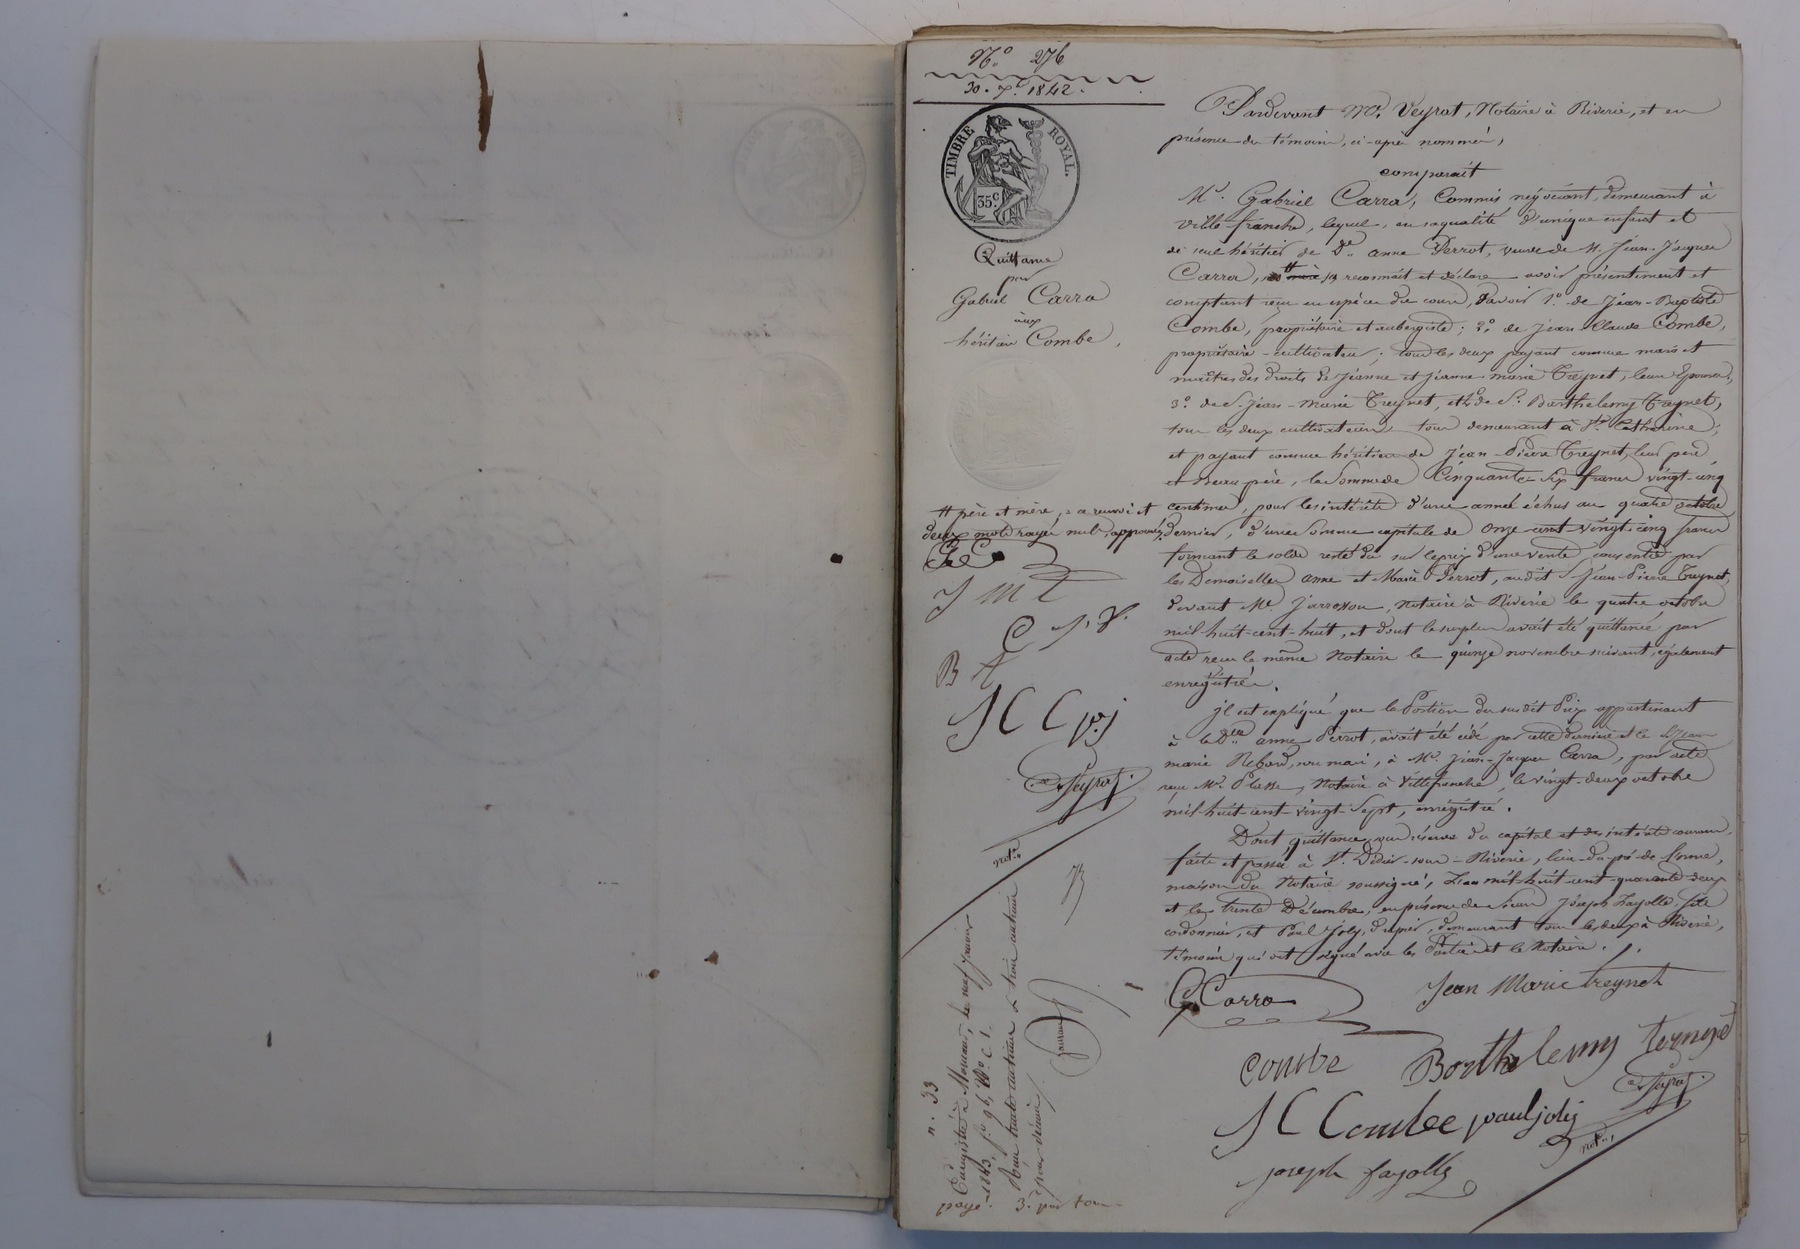 N.º 276
30. Xbre 1842.
TIMBRE ROYAL.
35 c
Quittance
par
Gabriel Carra
aux
héritiers Combe,
Pardevant Me. Veyrat, Notaire à Riverie, et en
présence des témoins, ci-après nommés,
comparait
Mr. Gabriel Carra, Commis négociant, demeurant à
Villefranche, lequel, en sa qualité d'unique enfant et
de seul héritier de De. anne Perrot, veuve de M. Jean-Jacques
Carra, reconnait et déclare avoir présentement et
comptant reçu en espèces du cours, Savoir 1.º de Jean-Baptiste
Combe, propriétaire et aubergiste; 2.º de Jean Claude Combe,
propriétaire-cultivateur; tous les deux payant comme maris et
maîtres des droits de Jeanne et Jeanne marie Treynet, leurs Epouses,
3.º de S. Jean-Marie Treynet, et 4.º de S. Barthelemy Treynet,
tous les deux cultivateurs, tous demeurant à Ste. Catherine;
et payant comme héritiers de Jean-Pierre Treynet, leur père
et Beau père, la Somme de Cinquante Six francs vingt-cinq
centimes, pour les intérêts d'une année échus au quatre octobre
dernier, d'une somme capitale de Onze cent vingt cinq francs
formant le solde resté dû sur le prix d'une vente consentie par
les Demoiselles anne et Marie Perrot, audit S. Jean-Pierre Treynet,
devant Me Jarrosson, Notaire à Riverie le quatre octobre
mil-huit-cent-huit, et dont le surplus avait été quittancé par
acte reçu le même Notaire le quinze novembre suivant, également
enregistré.
Il est expliqué que la Portion du susdit Prix appartenant
à la Dlle anne Perrot, avait été cédée par cette dernière et le S. Jean
marie Rebard, son mari, à Mr. Jean-Jacques Carra, par acte
reçu Me. Plasse, Notaire à Villefranche, le vingt-deux octobre
mil-huit-cent-vingt-Sept, enregistré.
Dont quittance, sous réserve du capital et des intérêts courans,
faite et passée à St. Didier-sous-Riverie, lieu du pré de
maison du Notaire soussigné, L'an mil-huit-cent-quarante-deux
et le trente Décembre, en présence de Sieurs Joseph Fayolle fils
cordonnier, et Paul Joly, Drapier, demeurant tous les deux à Riverie,
témoins qui ont signé avec les Parties et le Notaire.
tt père et mère, ; a renvoi et
deux mots rayés nuls, approuvés,
G C
J M T
C
B T
J C C p. j
Veyrat
notre
G Carra
Jean Marie treynet
combe
Barthelemy treynet
Veyrat
notre
J C Combe
paul joly
joseph fayolle
n.º 33
Enregistré à Mornant, le neuf janvier
1843, fº 96, Vº c. 1.
Reçu trente centimes & trois centimes
pour décime.
payé
3. pr tous